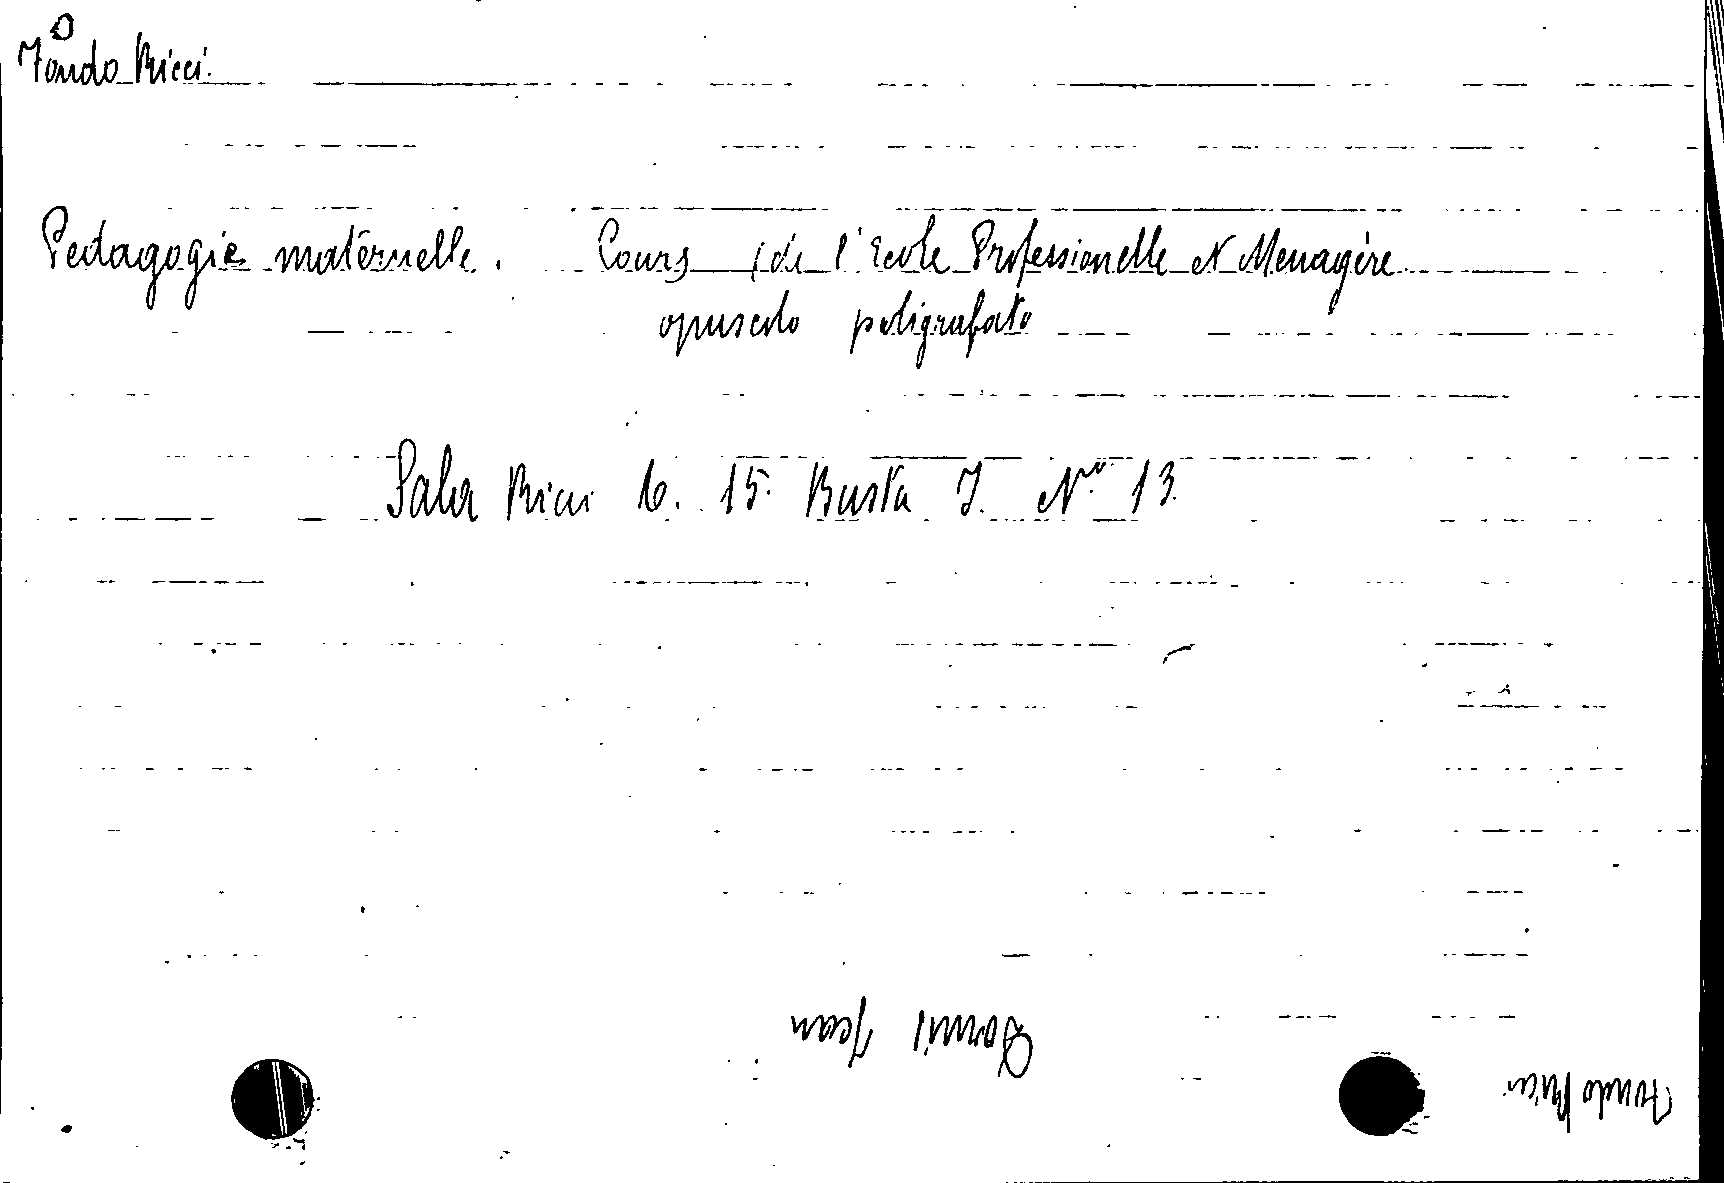 Fondo Ricci.
Pedagogie maternelle. Cours de l'Ecole Professionelle et Menagère
opuscolo poligrafato
Sala Ricci 6. 15. Busta I. Nº 13.
Jean
Fondo Ricci